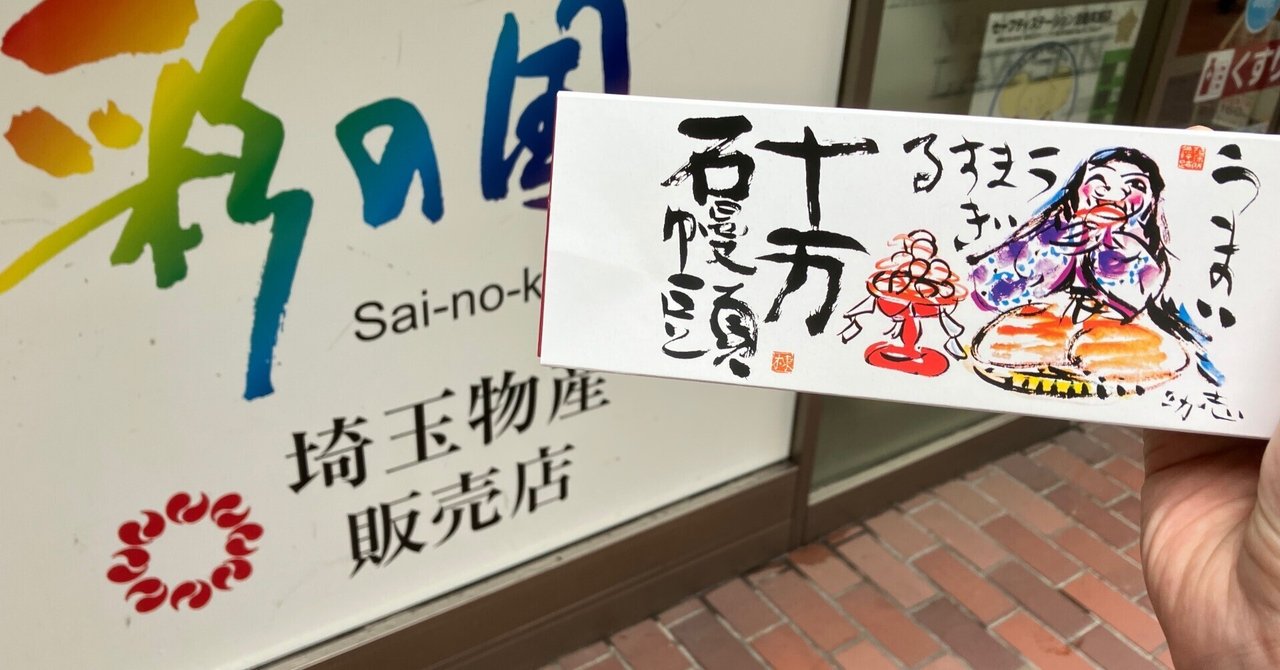 彩の国
Sai-no-k
埼玉物産
販売店
うまい
うますぎ
る
十万
石饅頭
セーフティステーション
くすり